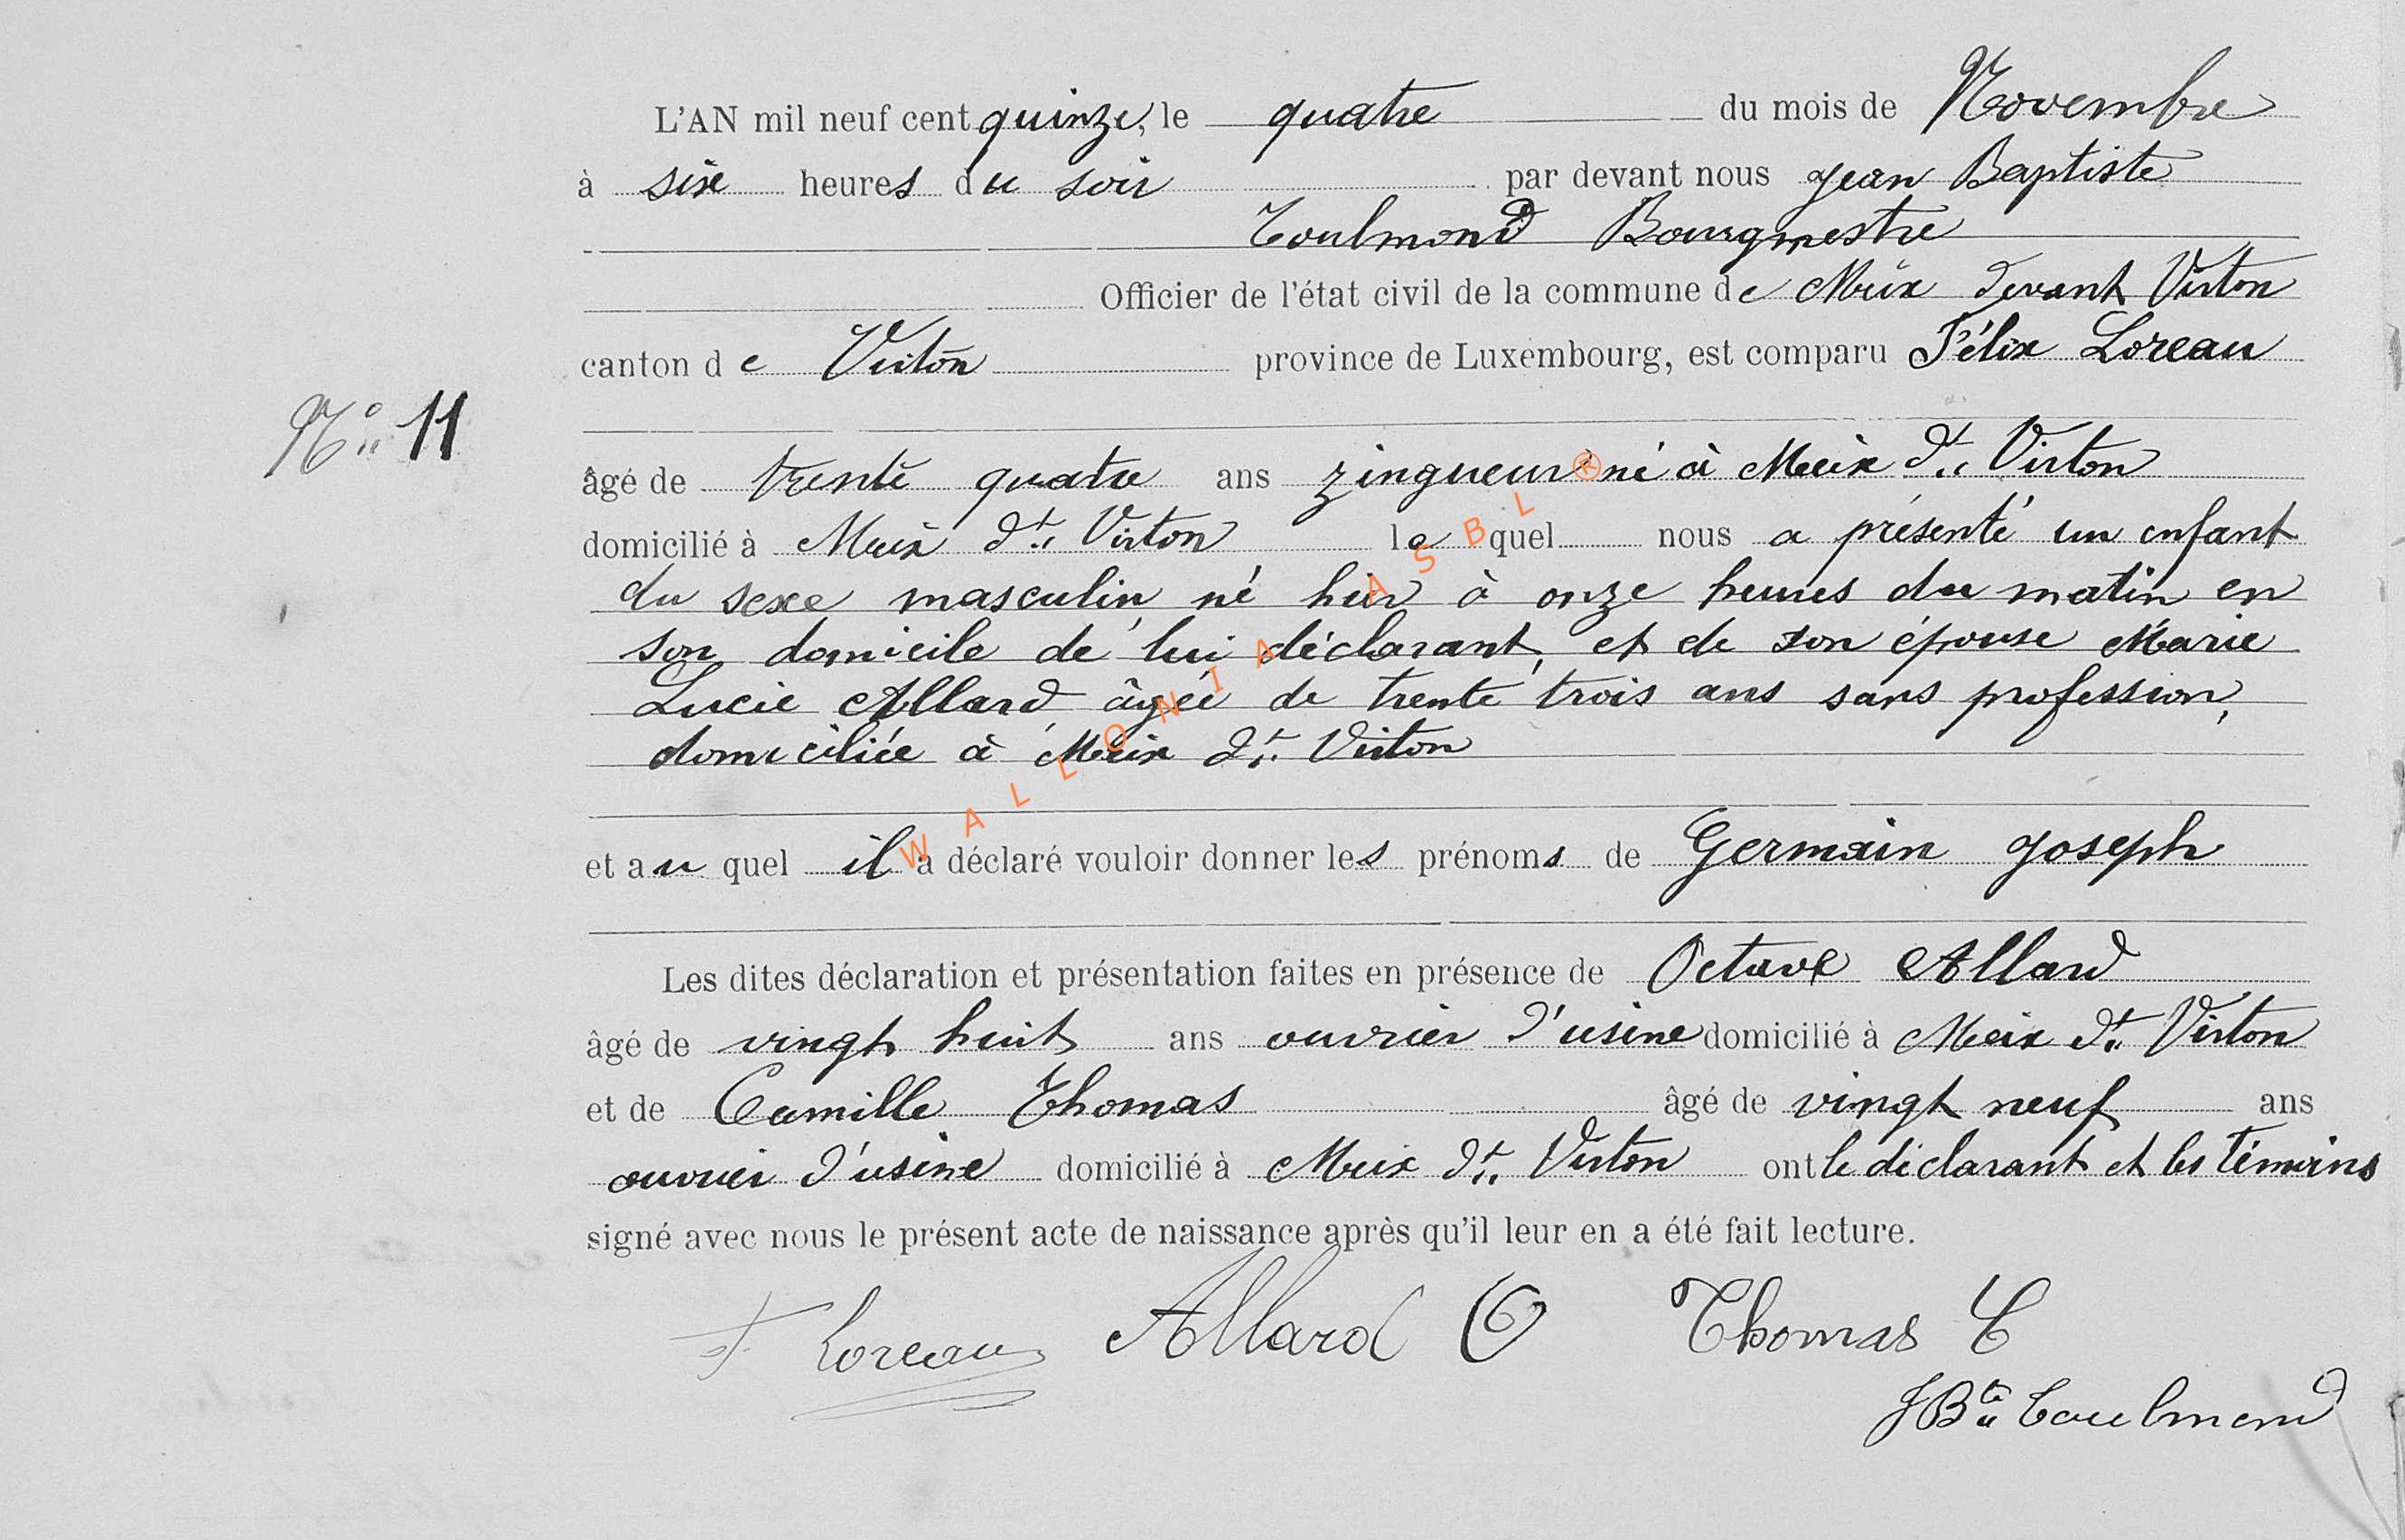 L'AN mil neuf cent quinze, le quatre du mois de Novembre
à six heures du soir par devant nous Jean Baptiste
Toulmond Bourgmestre
Officier de l'état civil de la commune de Meix devant Virton
canton de Virton province de Luxembourg, est comparu Félix Loreau
N° 11
âgé de trente quatre ans zingueur né à Meix dt Virton
domicilié à Meix dt Virton lequel nous a présenté un enfant
du sexe masculin né hier à onze heures du matin en
son domicile de lui déclarant, et de son épouse Marie
Lucie Allard âgée de trente trois ans sans profession,
domiciliée à Meix dt Virton
et auquel il a déclaré vouloir donner les prénoms de Germain Joseph
Les dites déclaration et présentation faites en présence de Octave Allard
âgé de vingt huit ans ouvrier d'usine domicilié à Meix dt Virton
et de Camille Thomas âgé de vingt neuf ans
ouvrier d'usine domicilié à Meix dt Virton ont le déclarant et les témoins
signé avec nous le présent acte de naissance après qu'il leur en a été fait lecture.
F Loreau Allard O Thomas C
JBte Toulmond
WALLONIA ASBL ®